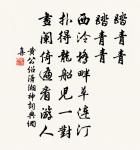 踏青青
踏青青
西泠橋畔草連汀
扑得龍船兒一對
畫闌倚遍看游人
黃公紹瀟湘神詞典網
集